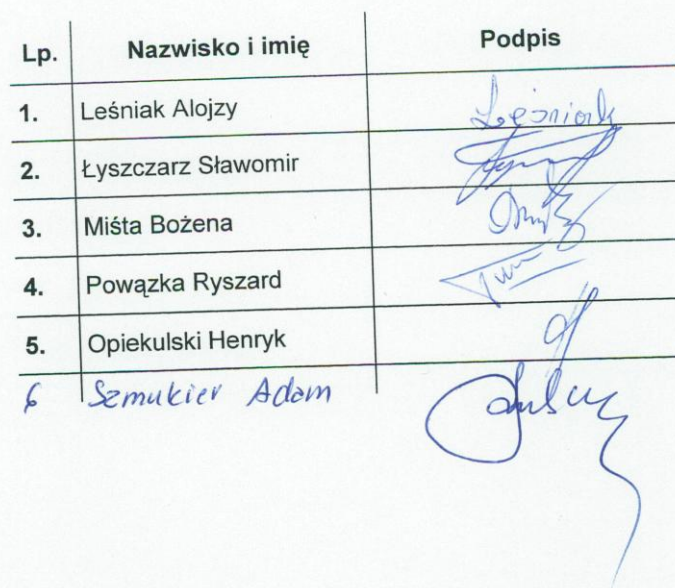 Lp. Nazwisko i imię Podpis
1. Leśniak Alojzy Leśniak
2. Łyszczarz Sławomir
3. Miśta Bożena
4. Powązka Ryszard
5. Opiekulski Henryk
6 Szmukier Adam